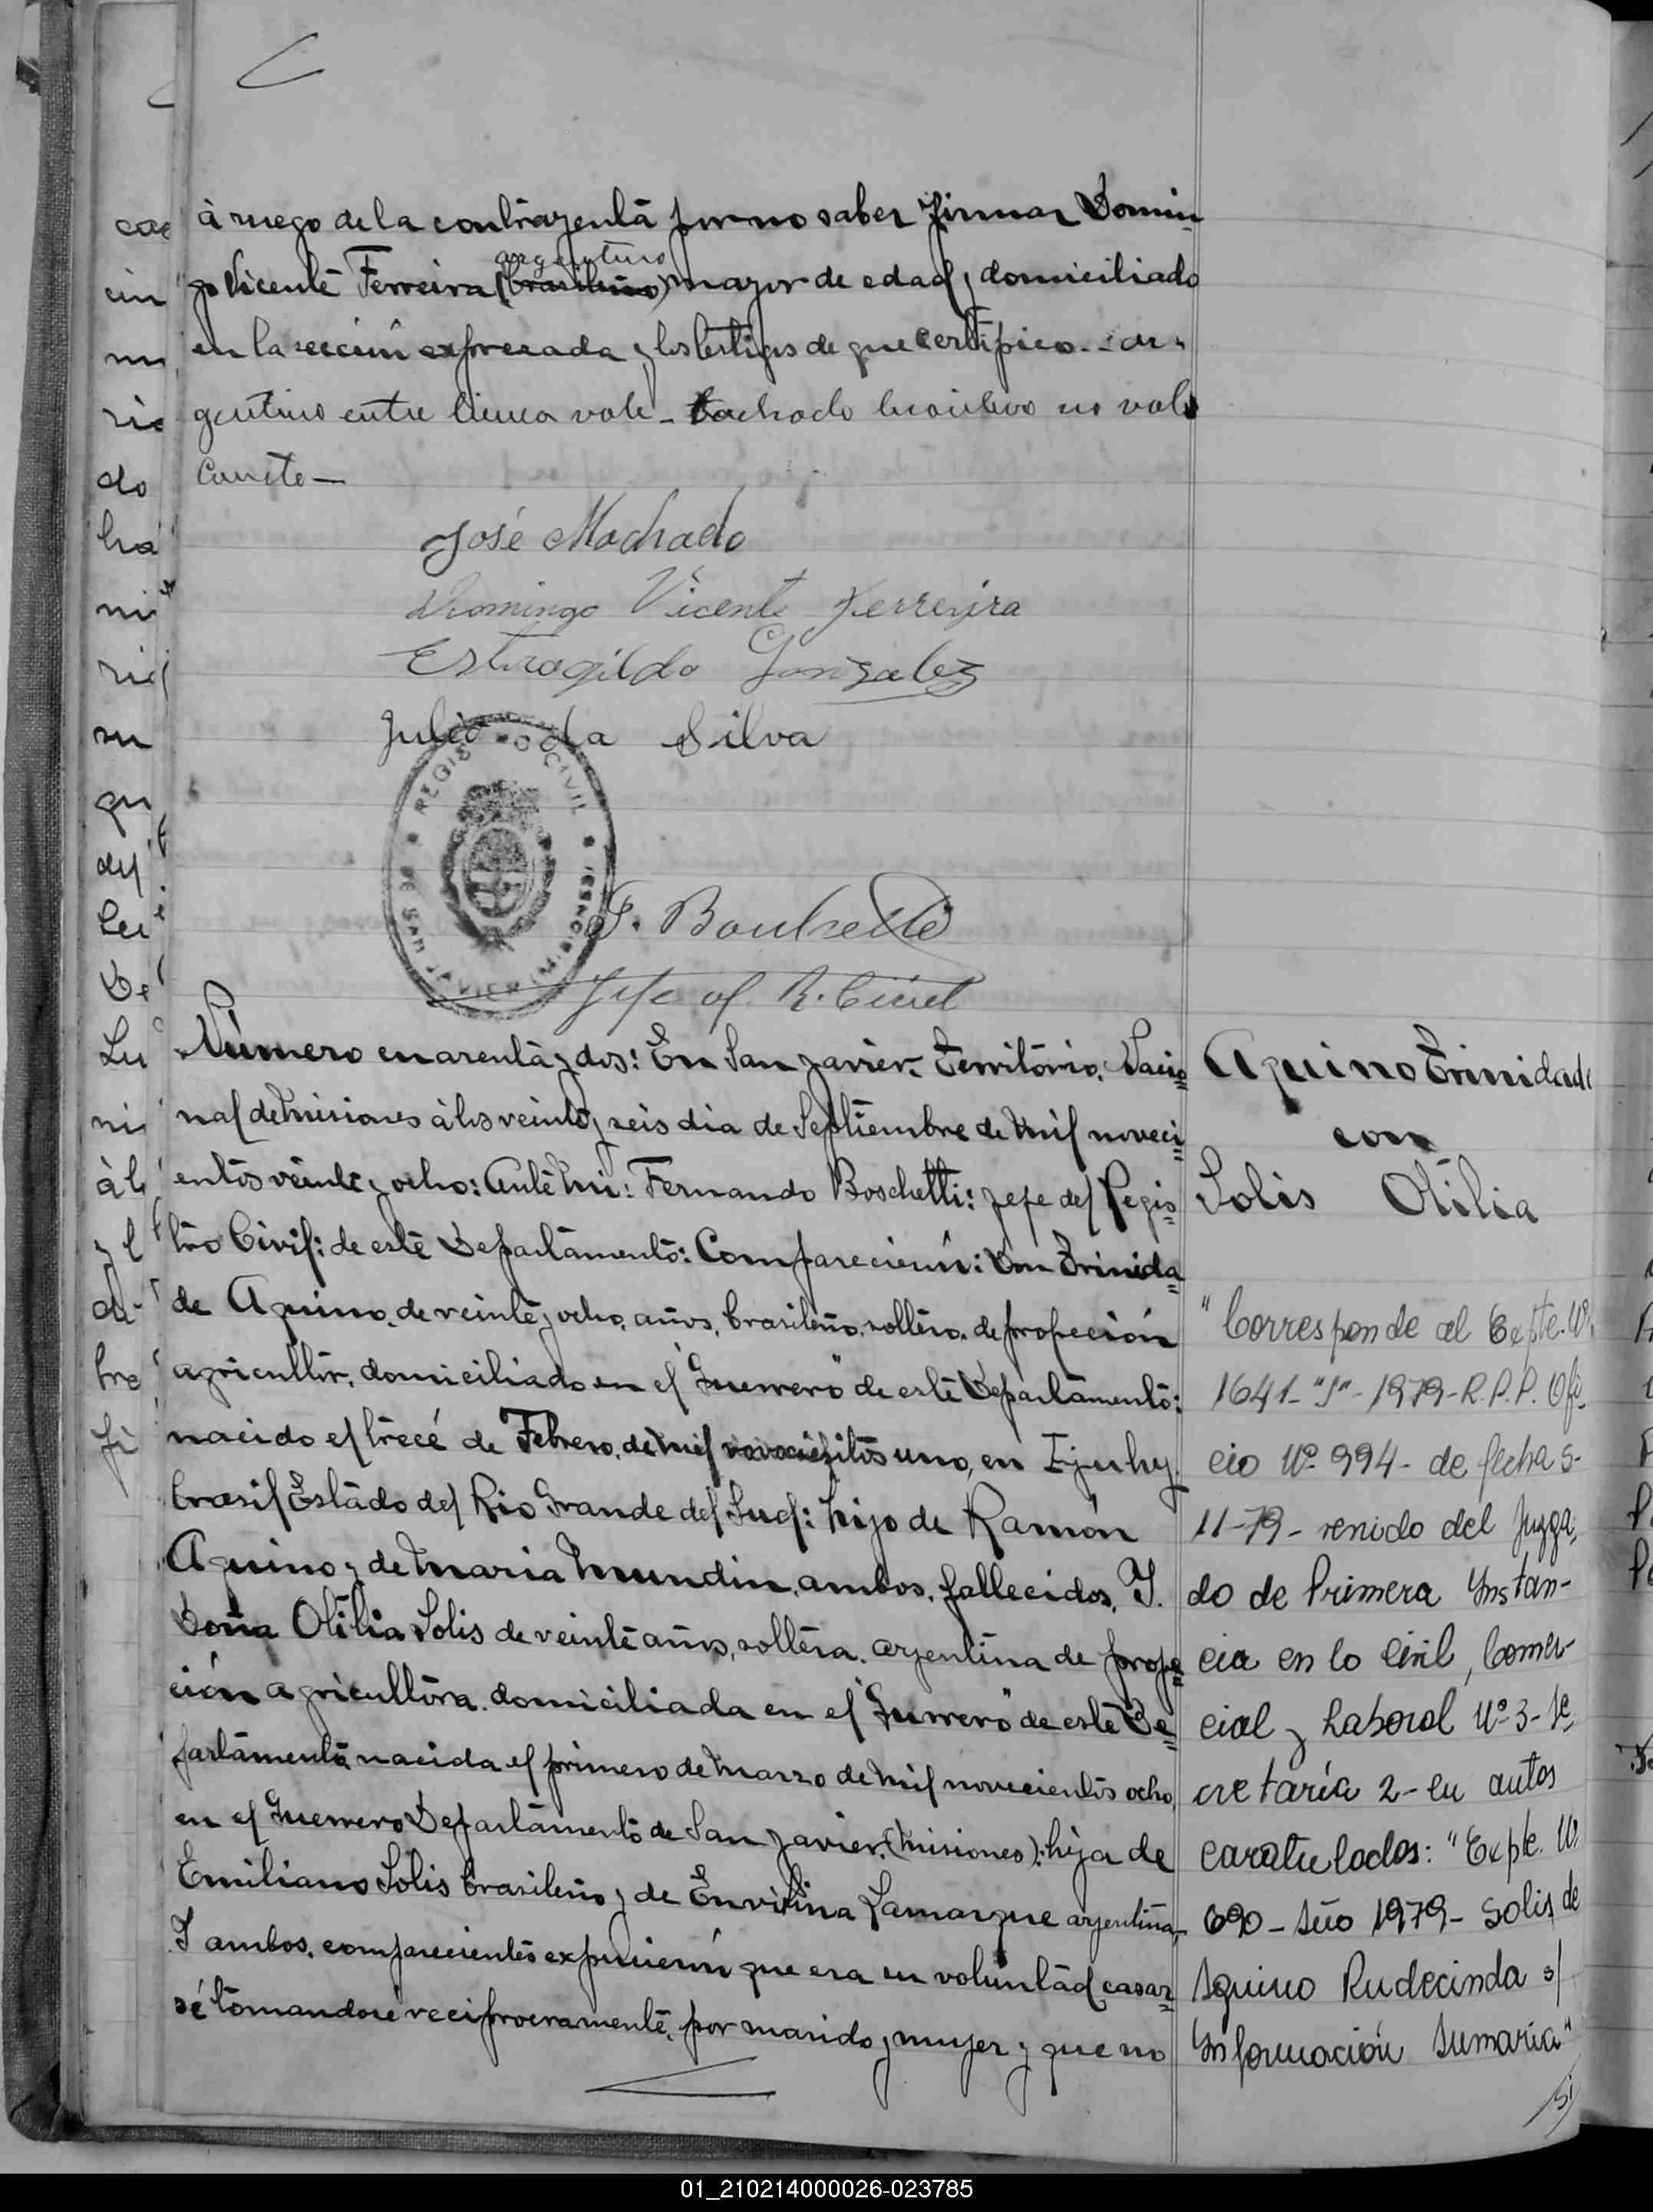 à ruego de la contrayentá por no saber firmar Domin-
go Vicenté Ferreira (brasileño) mayor de edad, domiciliado
argentino
en la sección expresada y los testigos de que certifico. - ar-
gentino entre linea vale - tachado brasilero no vale
Conste -
José Machado
Domingo Vicente Ferreira
Estrogildo Gonzalez
Julio da Silva
REGISTRO CIVIL
DE SAN JAVIER (MISIONES)
F. Boschetti
Jefe of. R. Civil
Número cuarentá y dos: En San Javier, Território, Nacio=
nal de Misiones à los veinte y seis dia de Septiembre de Mil noveci=
entós veinte y ocho: Anté Mi: Fernando Boschetti: Jefe del Regis=
tro Civil: de esté Departámentó: Comparecierón: Don Trinida=
de Aquino, de veinte y ocho, años, brasileño, soltéro, de profeción
agricultór, domiciliado en el "Guerrero" de esté Departámentó:
nacido el trecé de Febrero, de mil novocientós uno, en Ijuhy
brasil Estádo del Rio Grande del Sud: hijo de Ramón
Aquino y de Maria Mundin, ambos, fallecidos, Y.
Doña Otilia Solis de veinté años, soltéra, argentina de profe=
ción agricultóra, domiciliada en el "Gurrero" de esté De=
partámentó nacida el primero de Marzo de Mil novecientós ocho,
en el Guerrero Departámentó de San Javier, (Misiones): hija de
Emiliano Solis brasileño y de Envirina Lamarque argentina,
Y ambos, comparecientés expusierón que era su voluntád casar=
sé tómandosé reciprocramenté, por marido y mujer y que no
Aquino Trinidade
con
Solis Otilia
"Corresponde al Expte. Nº
1641-"S"-1979-R.P.P. Ofi-
cio Nº 994- de fecha 5-
11-79- venido del Juzga-
do de Primera Instan-
cia en lo Civil, Comer-
cial y Laboral Nº 3- Se
cretaría 2- en autos
caratulados: "Expte. Nº
690- Año 1979- Solis de
Aquino Rudecinda s/
Información Sumaria"
01_210214000026-023785